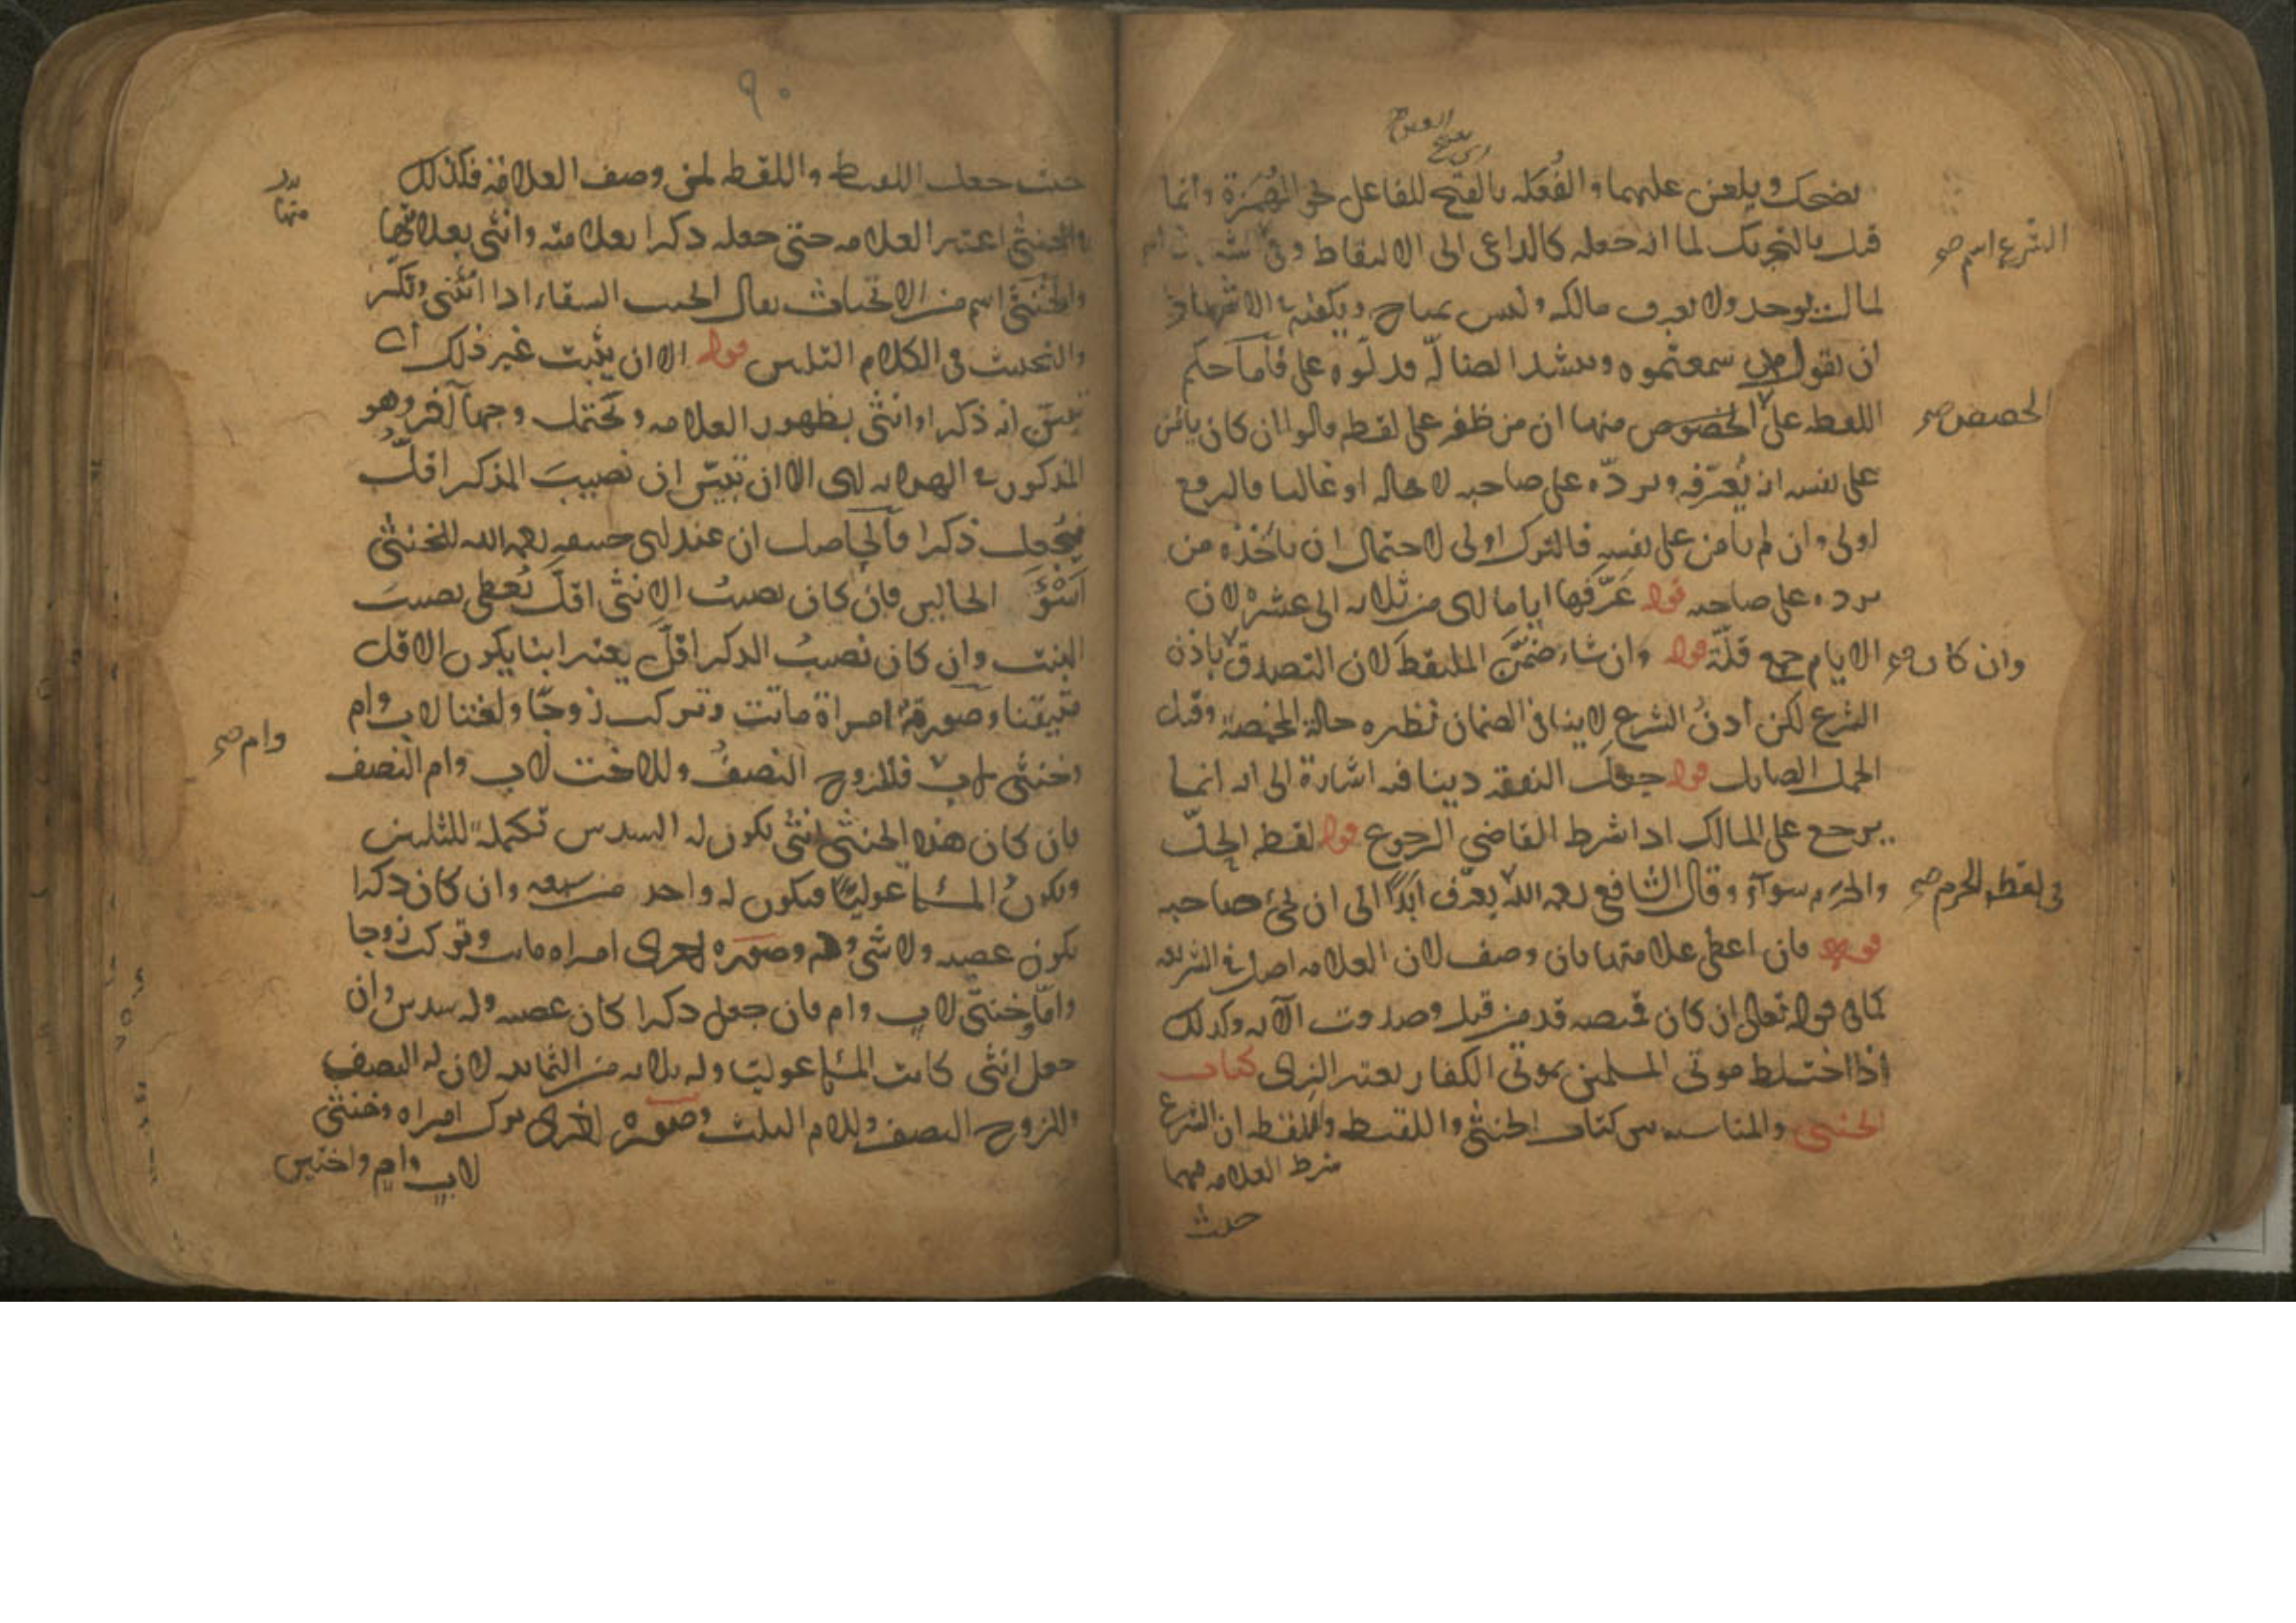 اى بفتح العين
يضحك ويلعن عليهما والفُعَله بالفتح للفاعل نحو الهُمَزة وانما
قيل بالتحريك لما انه جعله كالداعى الى الالتقاط وفى
الشرع اسم صح
لمال يوجد ولا يعرف مالكه وليس بمباح ويكفيه فى الاشهاد
ان يقول من سمعتموه ينشد الضالّة فدلّوه علىّ فاما حكم
اللقطه على الخصوص منها ان من ظفر على لقطه قالوا ان كان يأمن
الخصوص صح
على نفسه انه يُعرّفه ويردّه على صاحبه لا محاله او غالبا فالرفع
اولى وان لم يأمن على نفسه فالترك اولى لاحتمال ان يأخذه من
يرده على صاحبه قوله عَرَّفها اياما اى من ثلاثه الى عشره لان
الايام جمع قلّة قوله وان شاء ضمّنَ الملتقط لان التصدق باذن
وان كان صح
الشرع لكن اذنُ الشرع لا ينافى الضمان نظيره حالة المخمصة وقيل
الجمل الصايل قوله جعل النفقه دينا فيه اشارة الى انه انما
يرجع على المالك اذا شرط القاضي الرجوع قوله لقطه الحِلّ
والحرم سوآء وقال الشافعى رحمه الله يعرّف ابدًا الى ان يجئ صاحبه
فى لقطه الحرم صح
قوله فان اعطى علامتها فان وصف لان العلامه اصل فى الشريعه
كما فى قوله تعالى ان كان قميصه قد من قبل وصدقت الآيه وكذلك
اذا اختلط موتى المسلمين بموتى الكفار يعتبر الزى كتاب
الخنثى والمناسبه بين كتاب الخنثى واللقيط واللقطه ان الشرع
شرط العلامه فيهما
حيث
٩٠
حيث جعل اللقيط واللقطه لمن وصف العلامة فكذلك
والخنثى اعتبر العلامه حتى جعله ذكرا بعلامته وانثى بعلامتها
والخنثى اسم من الانخناث يقال الخنث السقاء اذا انثنى وتكسّر
والتخنيث فى الكلام التليين قوله الا ان يثبت غير ذلك اى
تبيّن انه ذكر او انثى بظهور العلامه ويحتمل وجها آخر وهو
المذكور فى الهدايه اى الا ان تبيّن ان نصيبَ المذكر اقلّ
فيُجعل ذكرا فالحاصل ان عند ابى حنيفه رحمه الله للخنثى
اَسْوَءَ الحالين فان كان نصيبُ الانثى اقلّ يُعطى نصيبَ
البنت وان كان نصيبُ الذكر اقلّ يعتبر ابنا يكون الاقل
متيقنا وصورتهُ امراة ماتت وتركت زوجًا واختا لاب وام
وخنثى لاب فللزوج النصفُ وللاخت لاب وام النصف
وام صح
فان كان هذه الخنثى انثى يكون له السدس تكملةً للثلثين
ويكونُ المسئلة عوليّا فيكون له واحد من سبعه وان كان ذكرا
يكون عصبه ولا شئ له وصوره اخرى امراه ماتت وتركت زوجا
وامًا وخنثى لاب وام فان جعل ذكرا كان عصبه وله سدس وان
جعل انثى كانت المسئلة عوليّا وله ثلاثه من الثمانيه لان له النصف
وللزوج النصف وللام الثلث وصوره اخرى ترك امراه وخنثى
لاب وام واختين